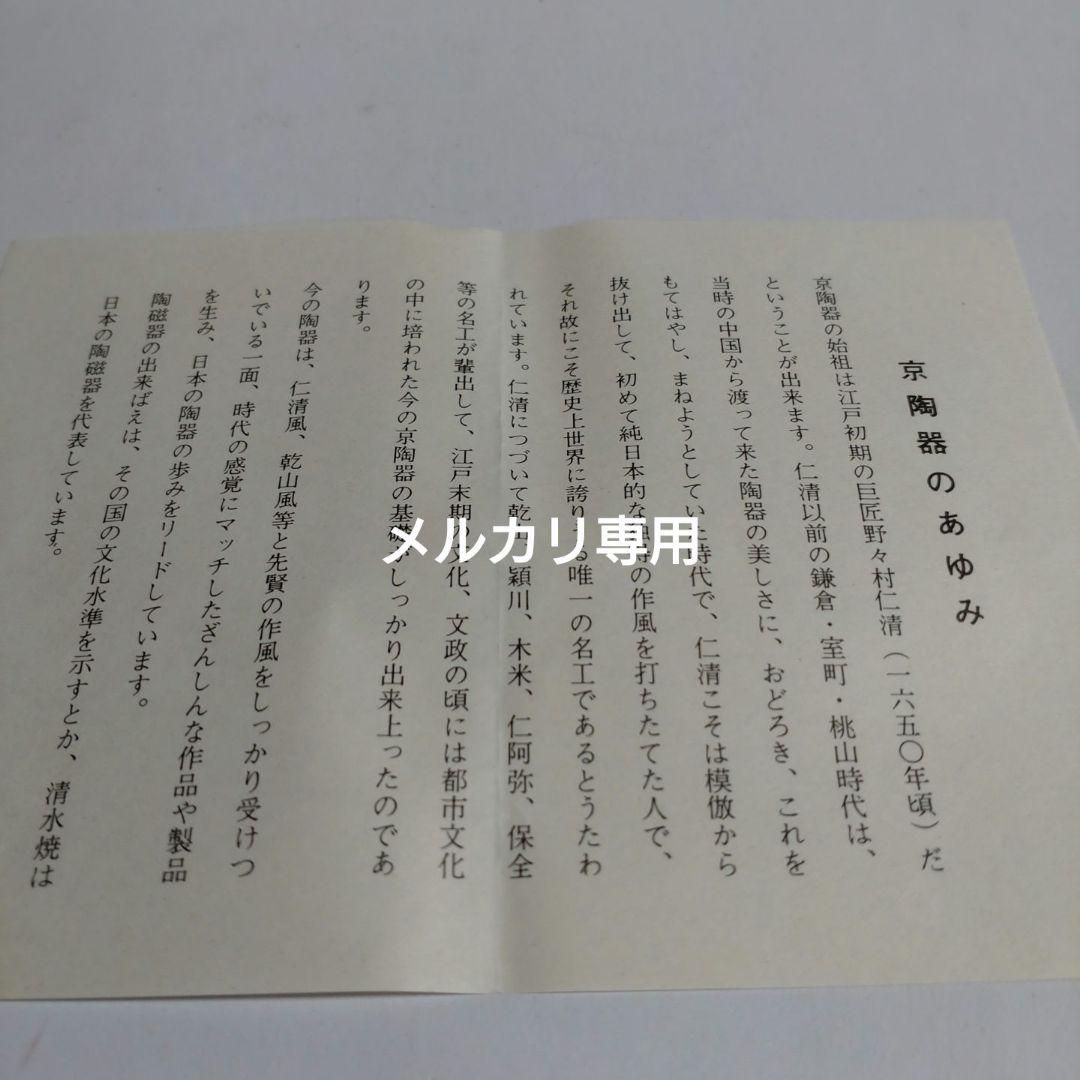 京陶器のあゆみ
京陶器の始祖は江戸初期の巨匠野々村仁清(一六五〇年頃)だ
ということが出来ます。仁清以前の鎌倉・室町・桃山時代は、
当時の中国から渡って来た陶器の美しさに、おどろき、これを
もてはやし、まねようとしていた時代で、仁清こそは模倣から
抜け出して、初めて純日本的な独特の作風を打ちたてた人で、
それ故にこそ歴史上世界に誇り る唯一の名工であるとうたわ
れています。仁清につづいて乾山、穎川、木米、仁阿弥、保全
等の名工が輩出して、江戸末期の文化、文政の頃には都市文化
の中に培われた今の京陶器の基礎がしっかり出来上ったのであ
ります。
今の陶器は、仁清風、乾山風等と先賢の作風をしっかり受けつ
いでいる一面、時代の感覚にマッチしたざんしんな作品や製品
を生み、日本の陶器の歩みをリードしています。
陶磁器の出来ばえは、その国の文化水準を示すとか、清水焼は
日本の陶磁器を代表しています。
メルカリ専用